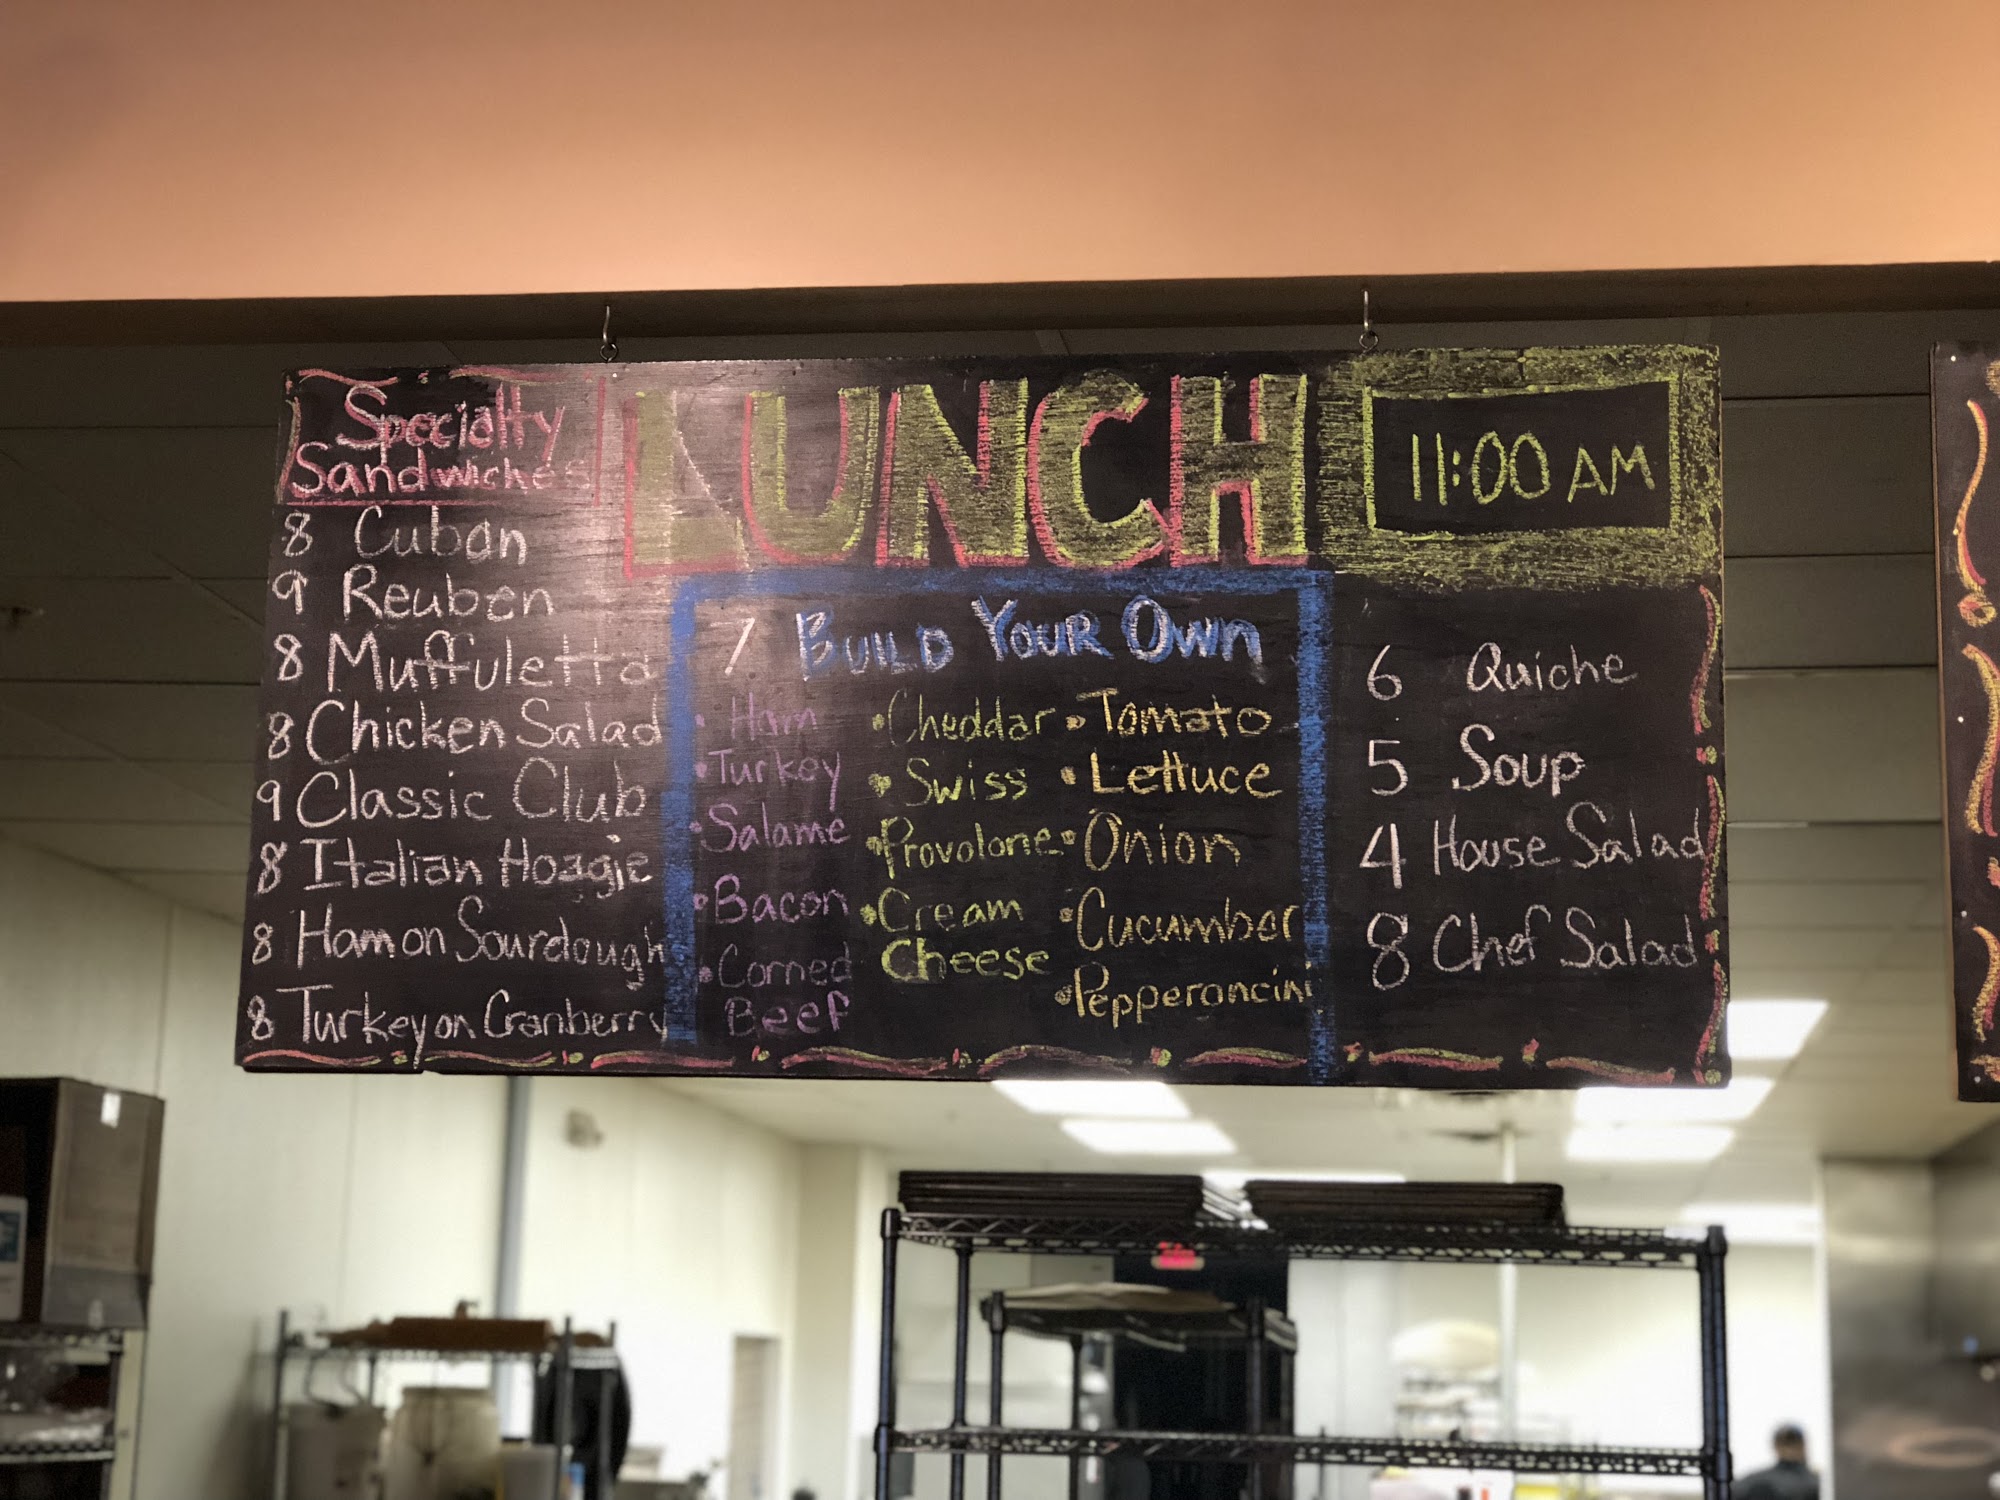 Specialty
Sandwiches
8 Cuban
9 Reuben
8 Muffuletta
8 Chicken Salad
9 Classic Club
8 Italian Hoagie
8 Ham on Sourdough
8 Turkey on Cranberry
LUNCH
11:00 AM
7 BUILD YOUR OWN
• Ham
• Turkey
• Salame
• Bacon
• Corned
Beef
• Cheddar
• Swiss
• Provolone
• Cream
Cheese
• Tomato
• Lettuce
• Onion
• Cucumber
• Pepperoncini
6 Quiche
5 Soup
4 House Salad
8 Chef Salad